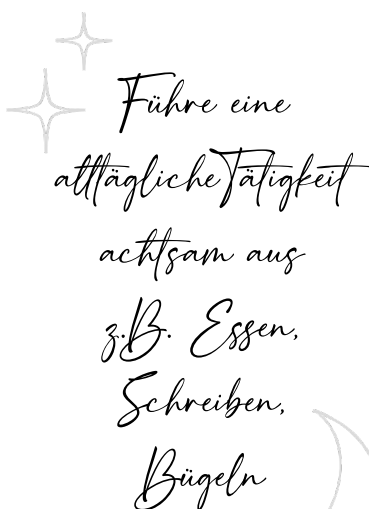 Führe eine
alltägliche Tätigkeit
achtsam aus
z.B. Essen,
Schreiben,
Bügeln